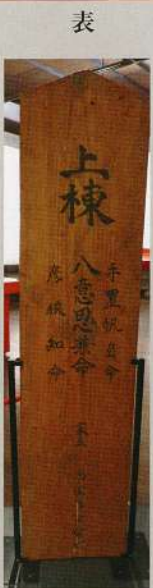 表
上棟
手置帆負命
八意思兼命
彦狭知命